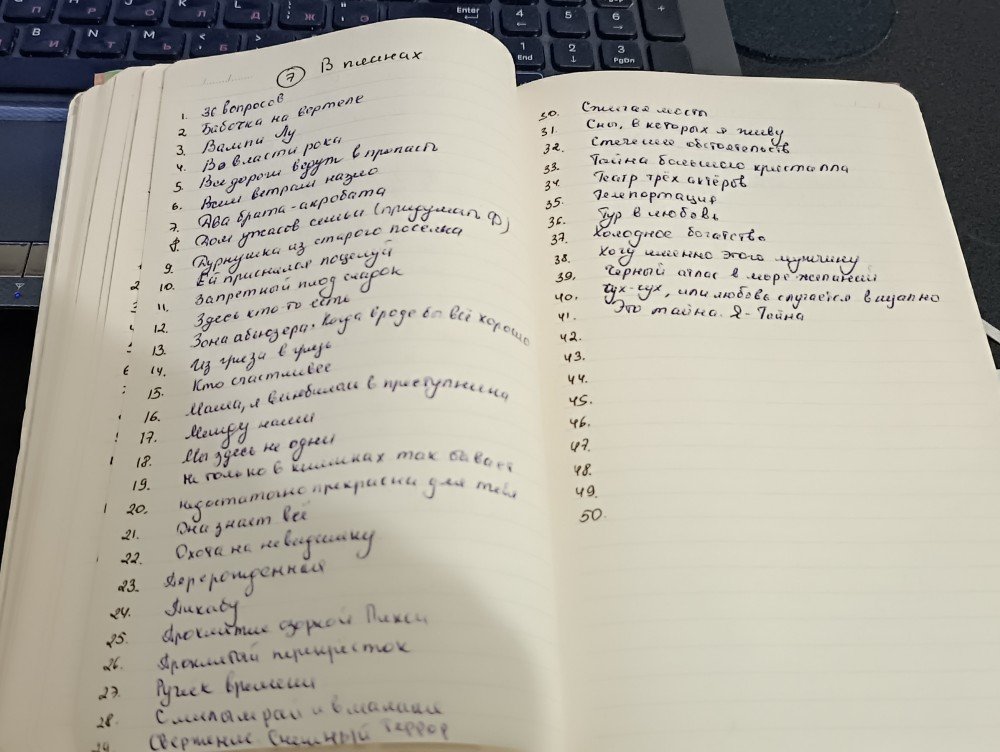 Enter
4
5
6
1
End
2
3
PgDn
7 В планах
1. 36 вопросов
2. Бабочка на вертеле
3. Вампи Лу
4. Во власти рока
5. Все дороги ведут в пропасть
6. Всем ветрам назло
7. Два брата-акробата
8. Дом ужасов семьи (придумать Ф)
9. Дурнушка из старого посёлка
10. Ей приснился поцелуй
11. Запретный плод сладок
12. Здесь кто-то есть
13. Зона абьюзера. Когда вроде бы всё хорошо
14. Из грязи в грязь
15. Кто счастливее
16. Мама, я влюбилась в преступника
17. Между нами
18. Мы здесь не одни
19. Не только в книжках так бывает
20. Недостаточно прекрасна для тебя
21. Она знает всё
22. Охота на невидимку
23. Перерожденная
24. Пикабу
25. Проклятие озорной Пикси
26. Проклятый перекрёсток
27. Ручеёк времени
28. С милым рай и в шалаше
29. Свержение. Снежный Террор
30. Сжигая мосты
31. Сны, в которых я живу
32. Стечение обстоятельств
33. Тайна большого кристалла
34. Театр трёх актёров
35. Телепортация
36. Тур в любовь
37. Холодное богатство
38. Хочу именно этого мужчину
39. Чёрный атлас в море желаний
40. Чух-чух, или любовь случается внезапно
41. Это тайна. Я - Тайна
42.
43.
44.
45.
46.
47.
48.
49.
50.